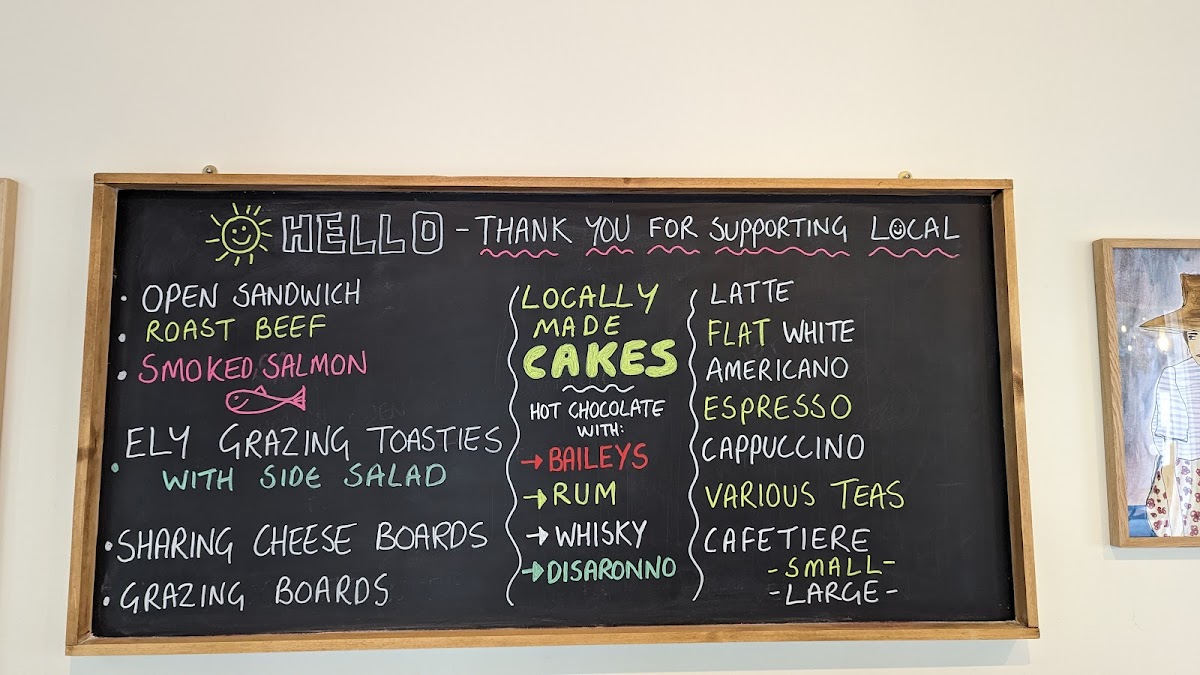 HELLO - THANK YOU FOR SUPPORTING LOCAL
• OPEN SANDWICH
• ROAST BEEF
• SMOKED SALMON
ELY GRAZING TOASTIES
• WITH SIDE SALAD
• SHARING CHEESE BOARDS
• GRAZING BOARDS
LOCALLY
MADE
CAKES
HOT CHOCOLATE
WITH:
→ BAILEYS
→ RUM
→ WHISKY
→ DISARONNO
LATTE
FLAT WHITE
AMERICANO
ESPRESSO
CAPPUCCINO
VARIOUS TEAS
CAFETIERE
- SMALL -
- LARGE -